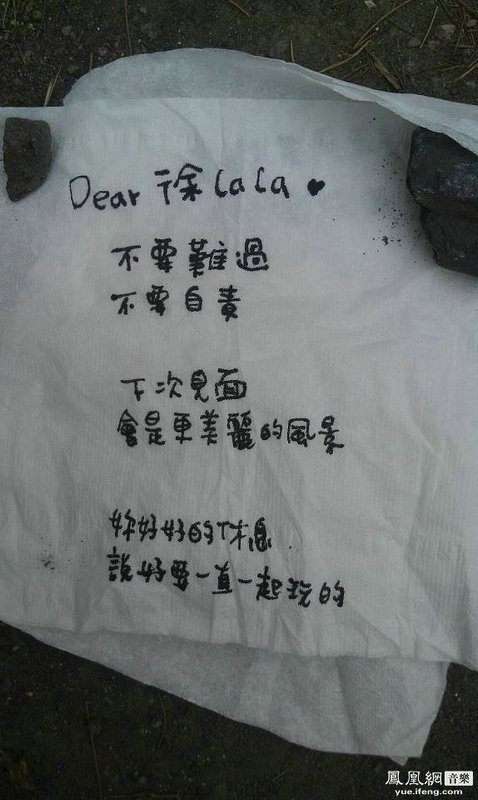 Dear 徐 La La ♥
不要難過
不要自責
下次見面
會是更美麗的風景
妳好好的休息
說好要一直一起玩的
鳳凰網 音樂
yue.ifeng.com